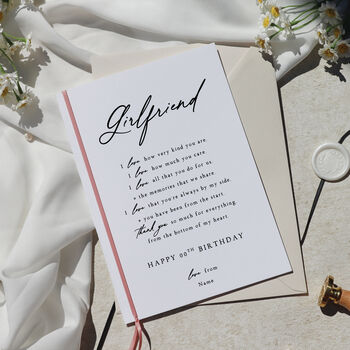 Girlfriend
I love how very kind you are.
I love how much you care.
I love all that you do for us,
+ the memories that we share.
I love that you're always by my side,
+ you have been from the start.
Thank you so much for everything,
from the bottom of my heart.
HAPPY 00TH BIRTHDAY
love from
Name